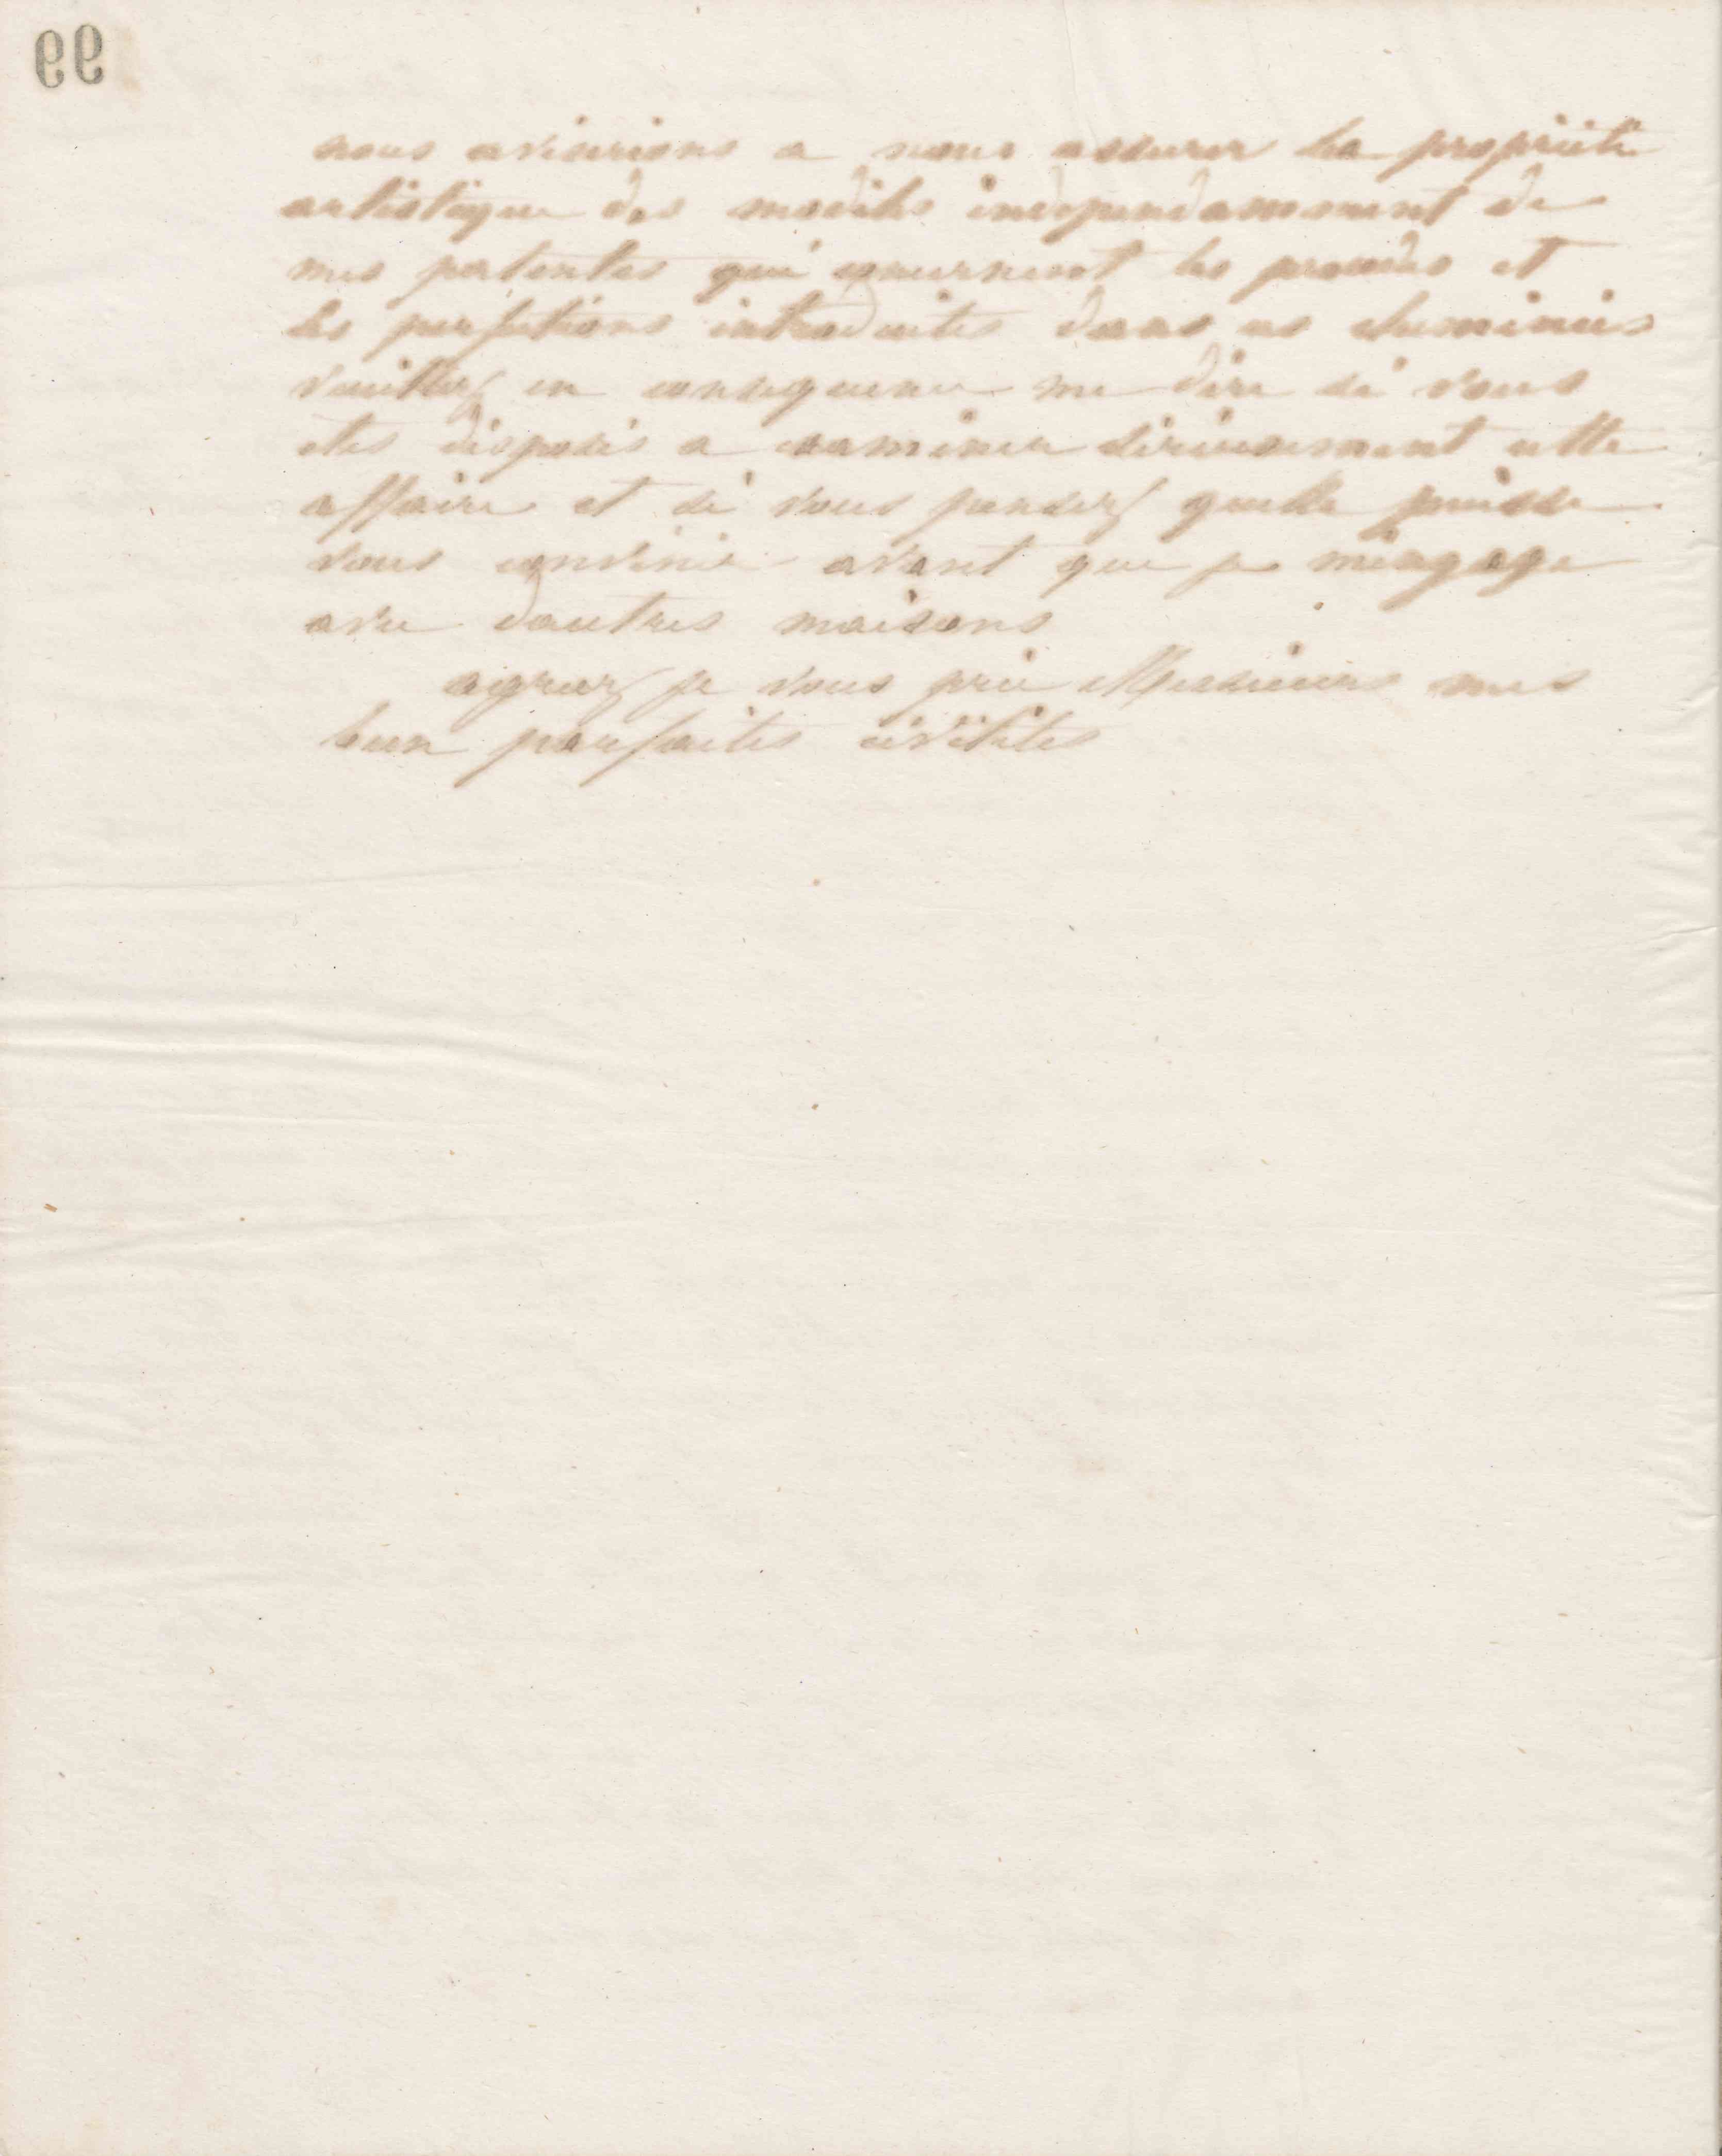 99
nous aviserions a nous assurer la propriété
artistique des modèles independamment de
mes patentes qui concernent les procédés et
les perfections introduites dans ces cheminées
veuillez en consequence me dire si vous
etes disposés a examiner sérieusement cette
affaire et si vous pensez quelle puisse
vous convenir avant que je m'engage
avec dautres maisons
agreez je vous prie Messieurs mes
bien parfaites civilités